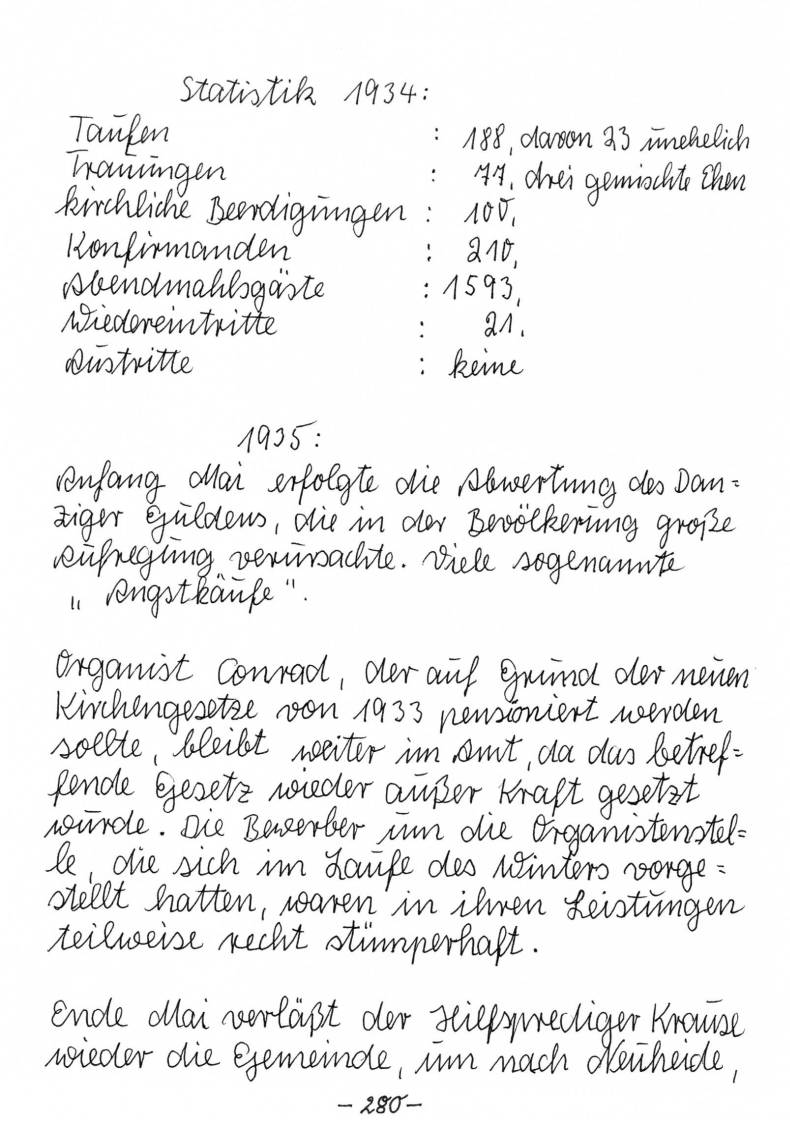 Statistik 1934:
Taufen : 188, davon 23 unehelich
Trauungen : 77, drei gemischte Ehen
kirchliche Beerdigungen : 100,
Konfirmanden : 210,
Abendmahlsgäste : 1593,
Wiedereintritte : 21.
Austritte : keine
1935:
Anfang Mai erfolgte die Abwertung des Dan=
ziger Guldens, die in der Bevölkerung große
Aufregung verursachte. Viele sogenannte
„Angstkäufe".
Organist Conrad, der auf Grund der neuen
Kirchengesetze von 1933 pensioniert werden
sollte, bleibt weiter im Amt, da das betref=
fende Gesetz wieder außer Kraft gesetzt
wurde. Die Bewerber um die Organistenstel=
le, die sich im Laufe des Winters vorge=
stellt hatten, waren in ihren Leistungen
teilweise recht stümperhaft.
Ende Mai verläßt der Hilfsprediger Krause
wieder die Gemeinde, um nach Neuheide,
- 280 -